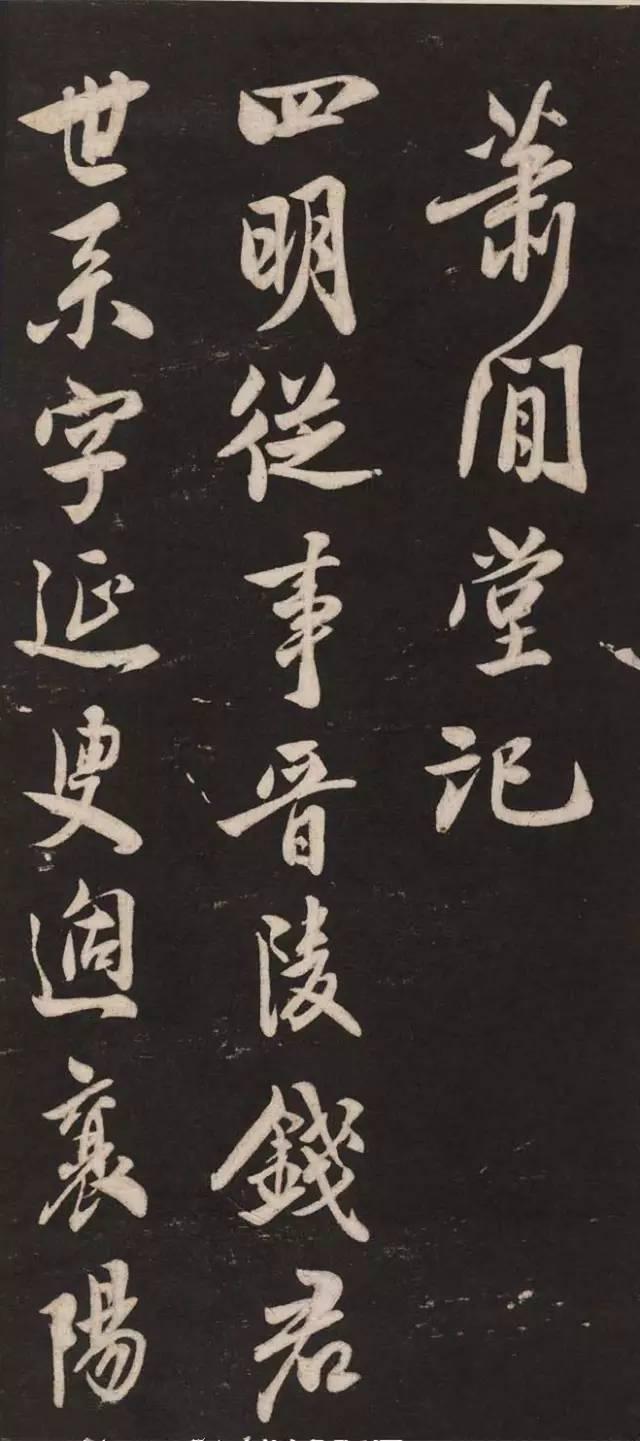 萧閒堂记
四明從事晋陵錢君
世系字延叟過襄陽